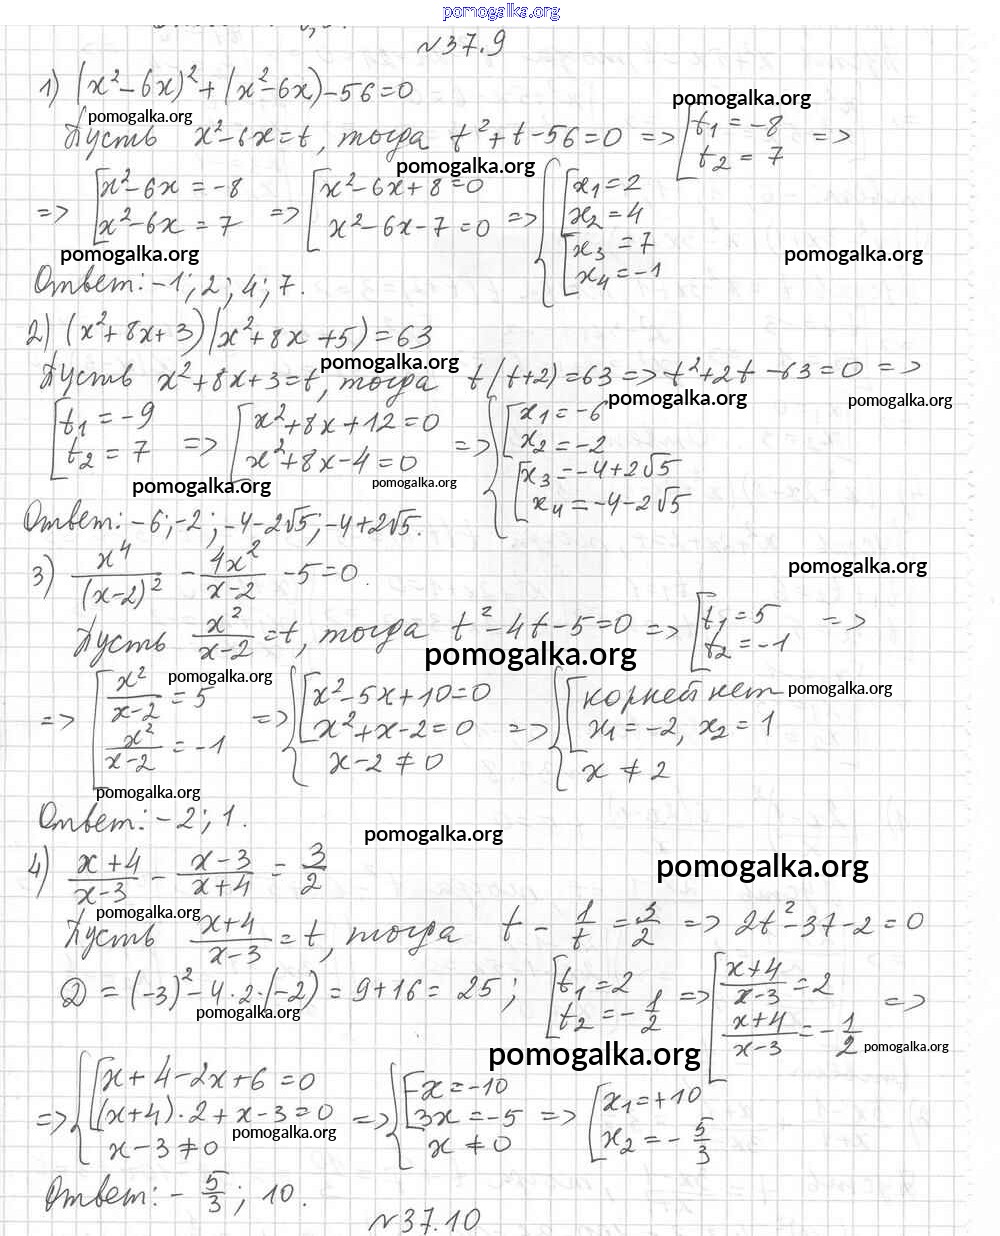 pomogalka.org
№37.9
1) (x²-6x)²+(x²-6x)-56=0
pomogalka.org
pomogalka.org
Пусть x²-6x=t, тогда t²+t-56=0 => [t₁=-8 =>
t₂=7
pomogalka.org
=> [x²-6x=-8 => [x²-6x+8=0 => {[x₁=2
x²-6x=7 x²-6x-7=0 x₂=4
[x₃=7
x₄=-1
pomogalka.org
pomogalka.org
Ответ: -1; 2; 4; 7.
2) (x²+8x+3)(x²+8x+5)=63
pomogalka.org
Пусть x²+8x+3=t, тогда t(t+2)=63 => t²+2t-63=0 =>
pomogalka.org
pomogalka.org
[t₁=-9 => [x²+8x+12=0 => {[x₁=-6
t₂=7 x²+8x-4=0 x₂=-2
[x₃=-4+2√5
x₄=-4-2√5
pomogalka.org
pomogalka.org
Ответ: -6; -2; -4-2√5; -4+2√5.
3) x⁴/(x-2)² - 4x²/x-2 -5=0.
pomogalka.org
Пусть x²/x-2=t, тогда t²-4t-5=0 => [t₁=5 =>
t₂=-1
pomogalka.org
pomogalka.org
pomogalka.org
=> [x²/x-2=5 => {[x²-5x+10=0 => {[корней нет
x²/x-2=-1 x²+x-2=0 x₁=-2, x₂=1
x-2≠0 x≠2
pomogalka.org
Ответ: -2; 1.
pomogalka.org
4) x+4/x-3 - x-3/x+4 = 3/2
pomogalka.org
pomogalka.org
Пусть x+4/x-3=t, тогда t - 1/t = 3/2 => 2t²-3t-2=0
D=(-3)²-4·2·(-2)=9+16=25; [t₁=2 => [x+4/x-3=2 =>
t₂=-1/2 x+4/x-3=-1/2
pomogalka.org
pomogalka.org
pomogalka.org
=> {[x+4-2x+6=0 => {[-x=-10 => [x₁=+10
(x+4)·2+x-3=0 3x=-5 x₂=-5/3
x-3≠0 x≠0
pomogalka.org
Ответ: -5/3; 10.
№37.10